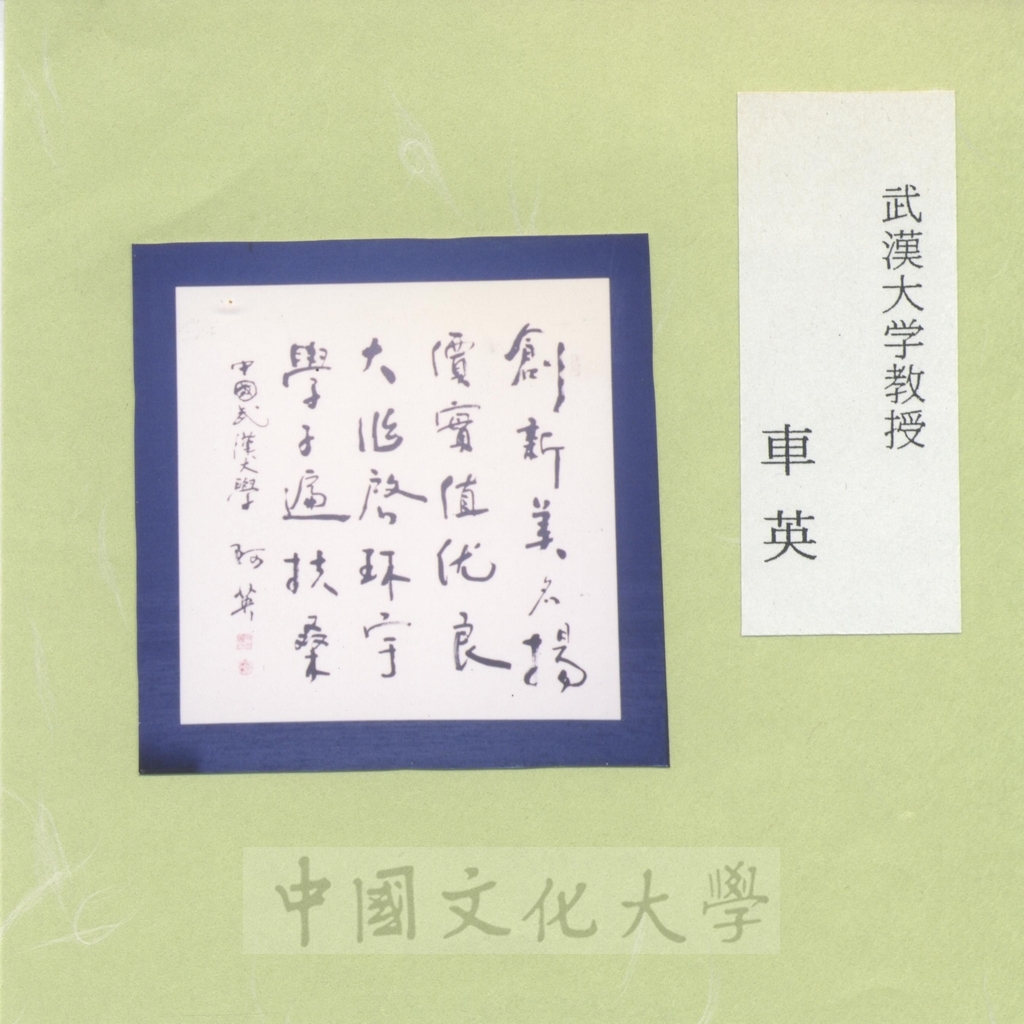 武漢大学教授
車英
創新美名揚
價實值优良
大作啓环宇
學子遍扶桑
中國武漢大學 阿英
中國文化大學